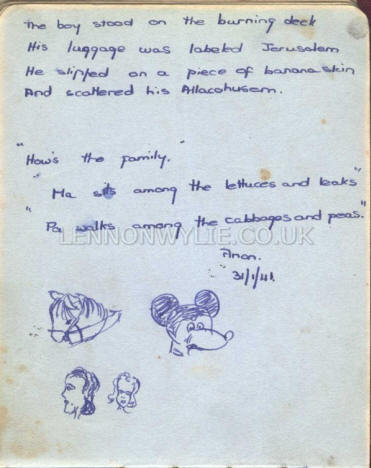 The boy stood on the burning deck
His luggage was labeled Jerusalem
He slipped on a piece of banana skin
And scattered his Allacohusem.
"How's the family."
"Ma sits among the lettuces and leaks"
"Pa walks among the cabbages and peas."
LENNONWYLIE.CO.UK
Anon.
31/1/41.